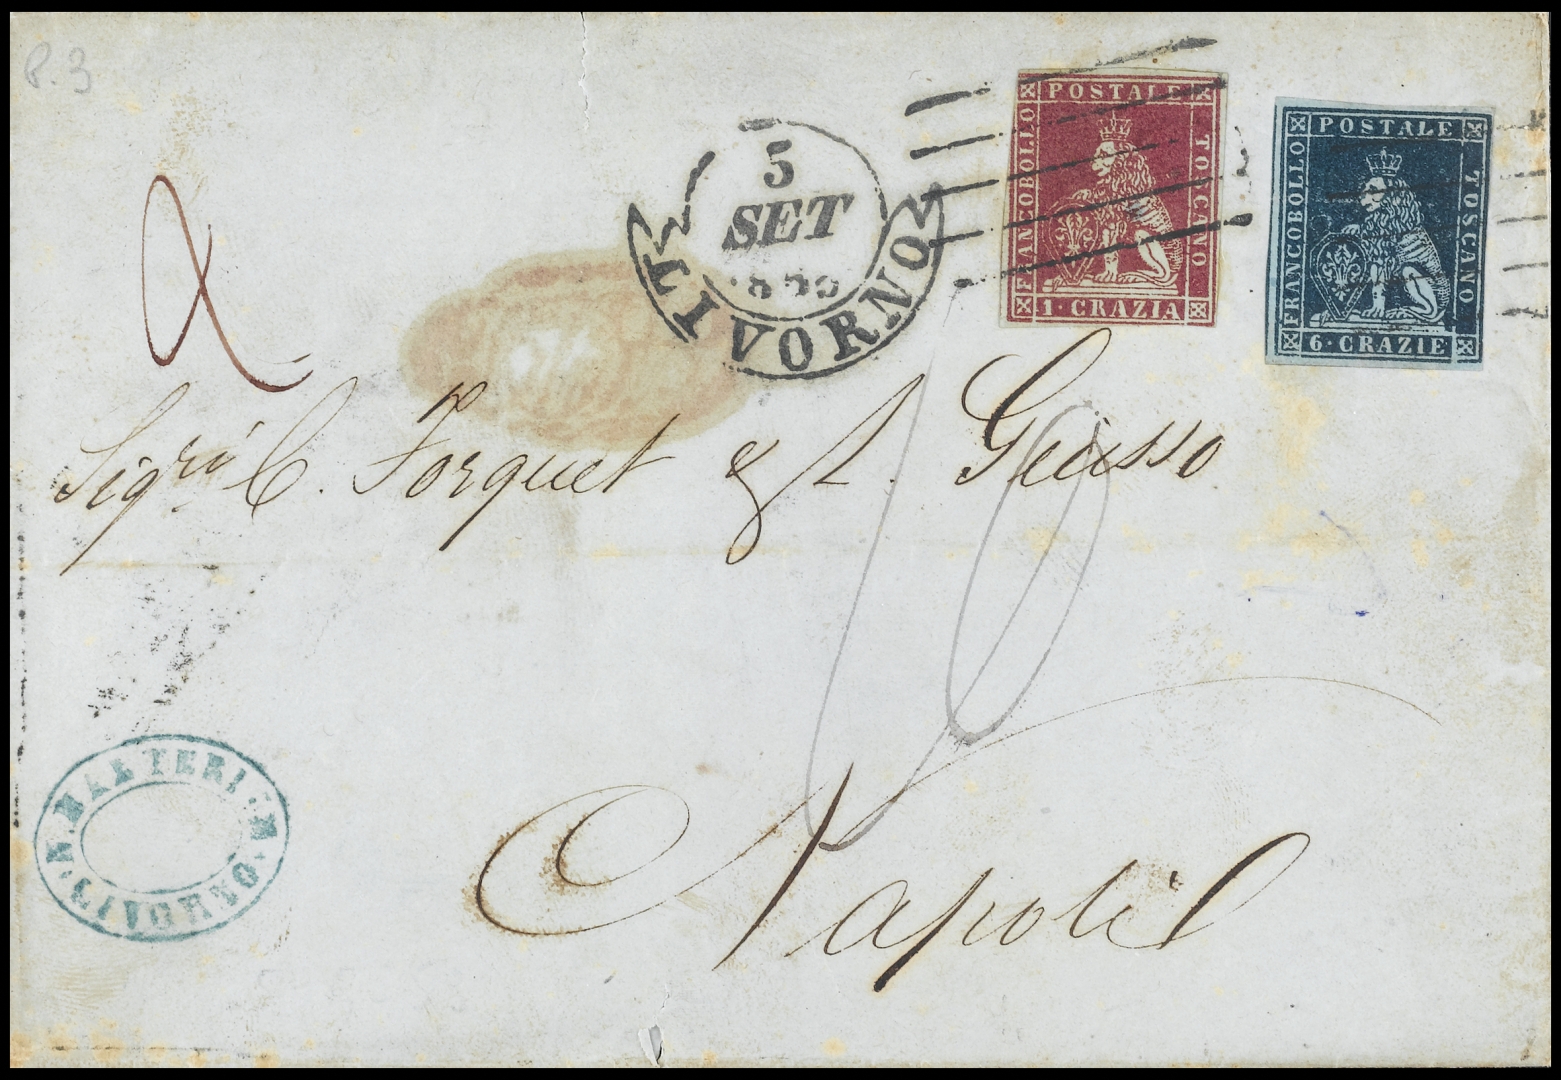 P. 3
5
SET
LIVORNO
FRANCOBOLLO
POSTALE
TOSCANO
1·CRAZIA
FRANCOBOLLO
POSTALE
TOSCANO
6·CRAZIE
Sigri C. Forquet & L. Giusso
10
Napoli
LIVORNO